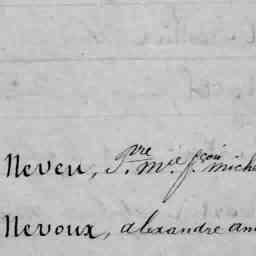 Neveu, P.re M.ie f.çois mich
Nevoux, alexandre am